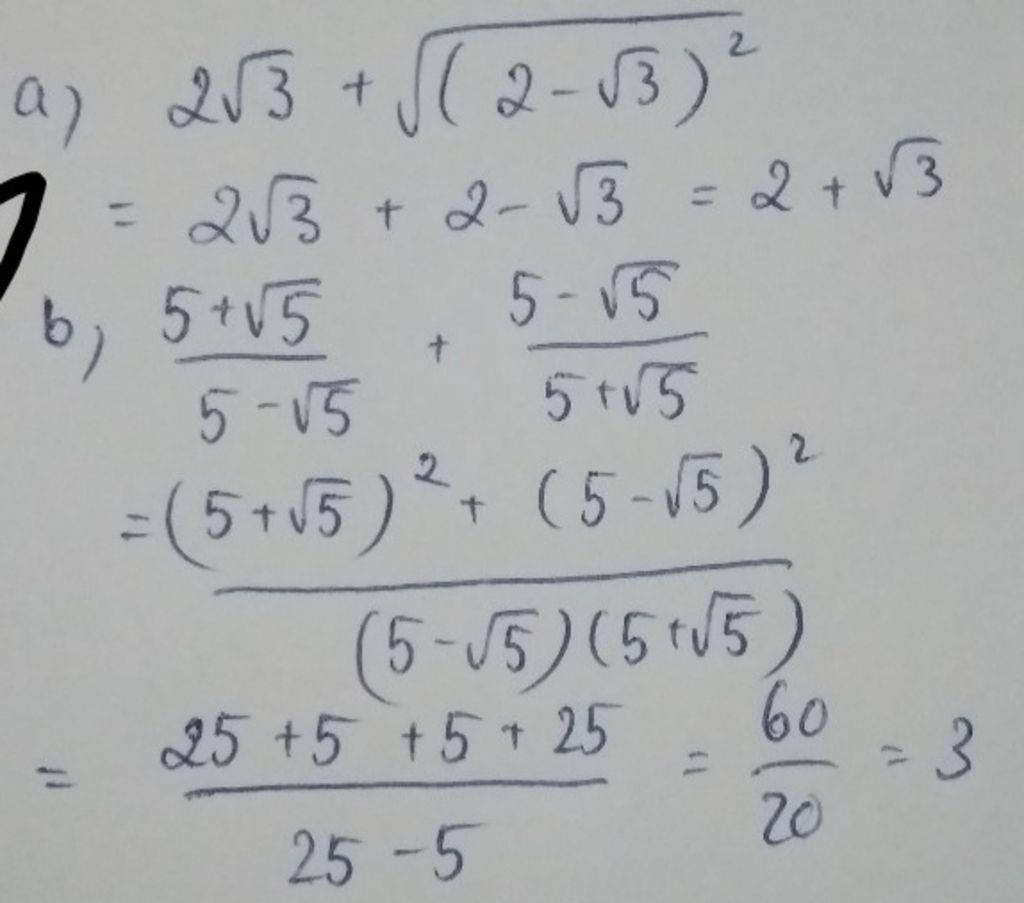 a) 2√3 + √((2-√3)²)
= 2√3 + 2-√3 = 2 + √3
b) (5+√5)/(5-√5) + (5-√5)/(5+√5)
= ((5+√5)² + (5-√5)²)/((5-√5)(5+√5))
= (25+5+5+25)/(25-5) = 60/20 = 3